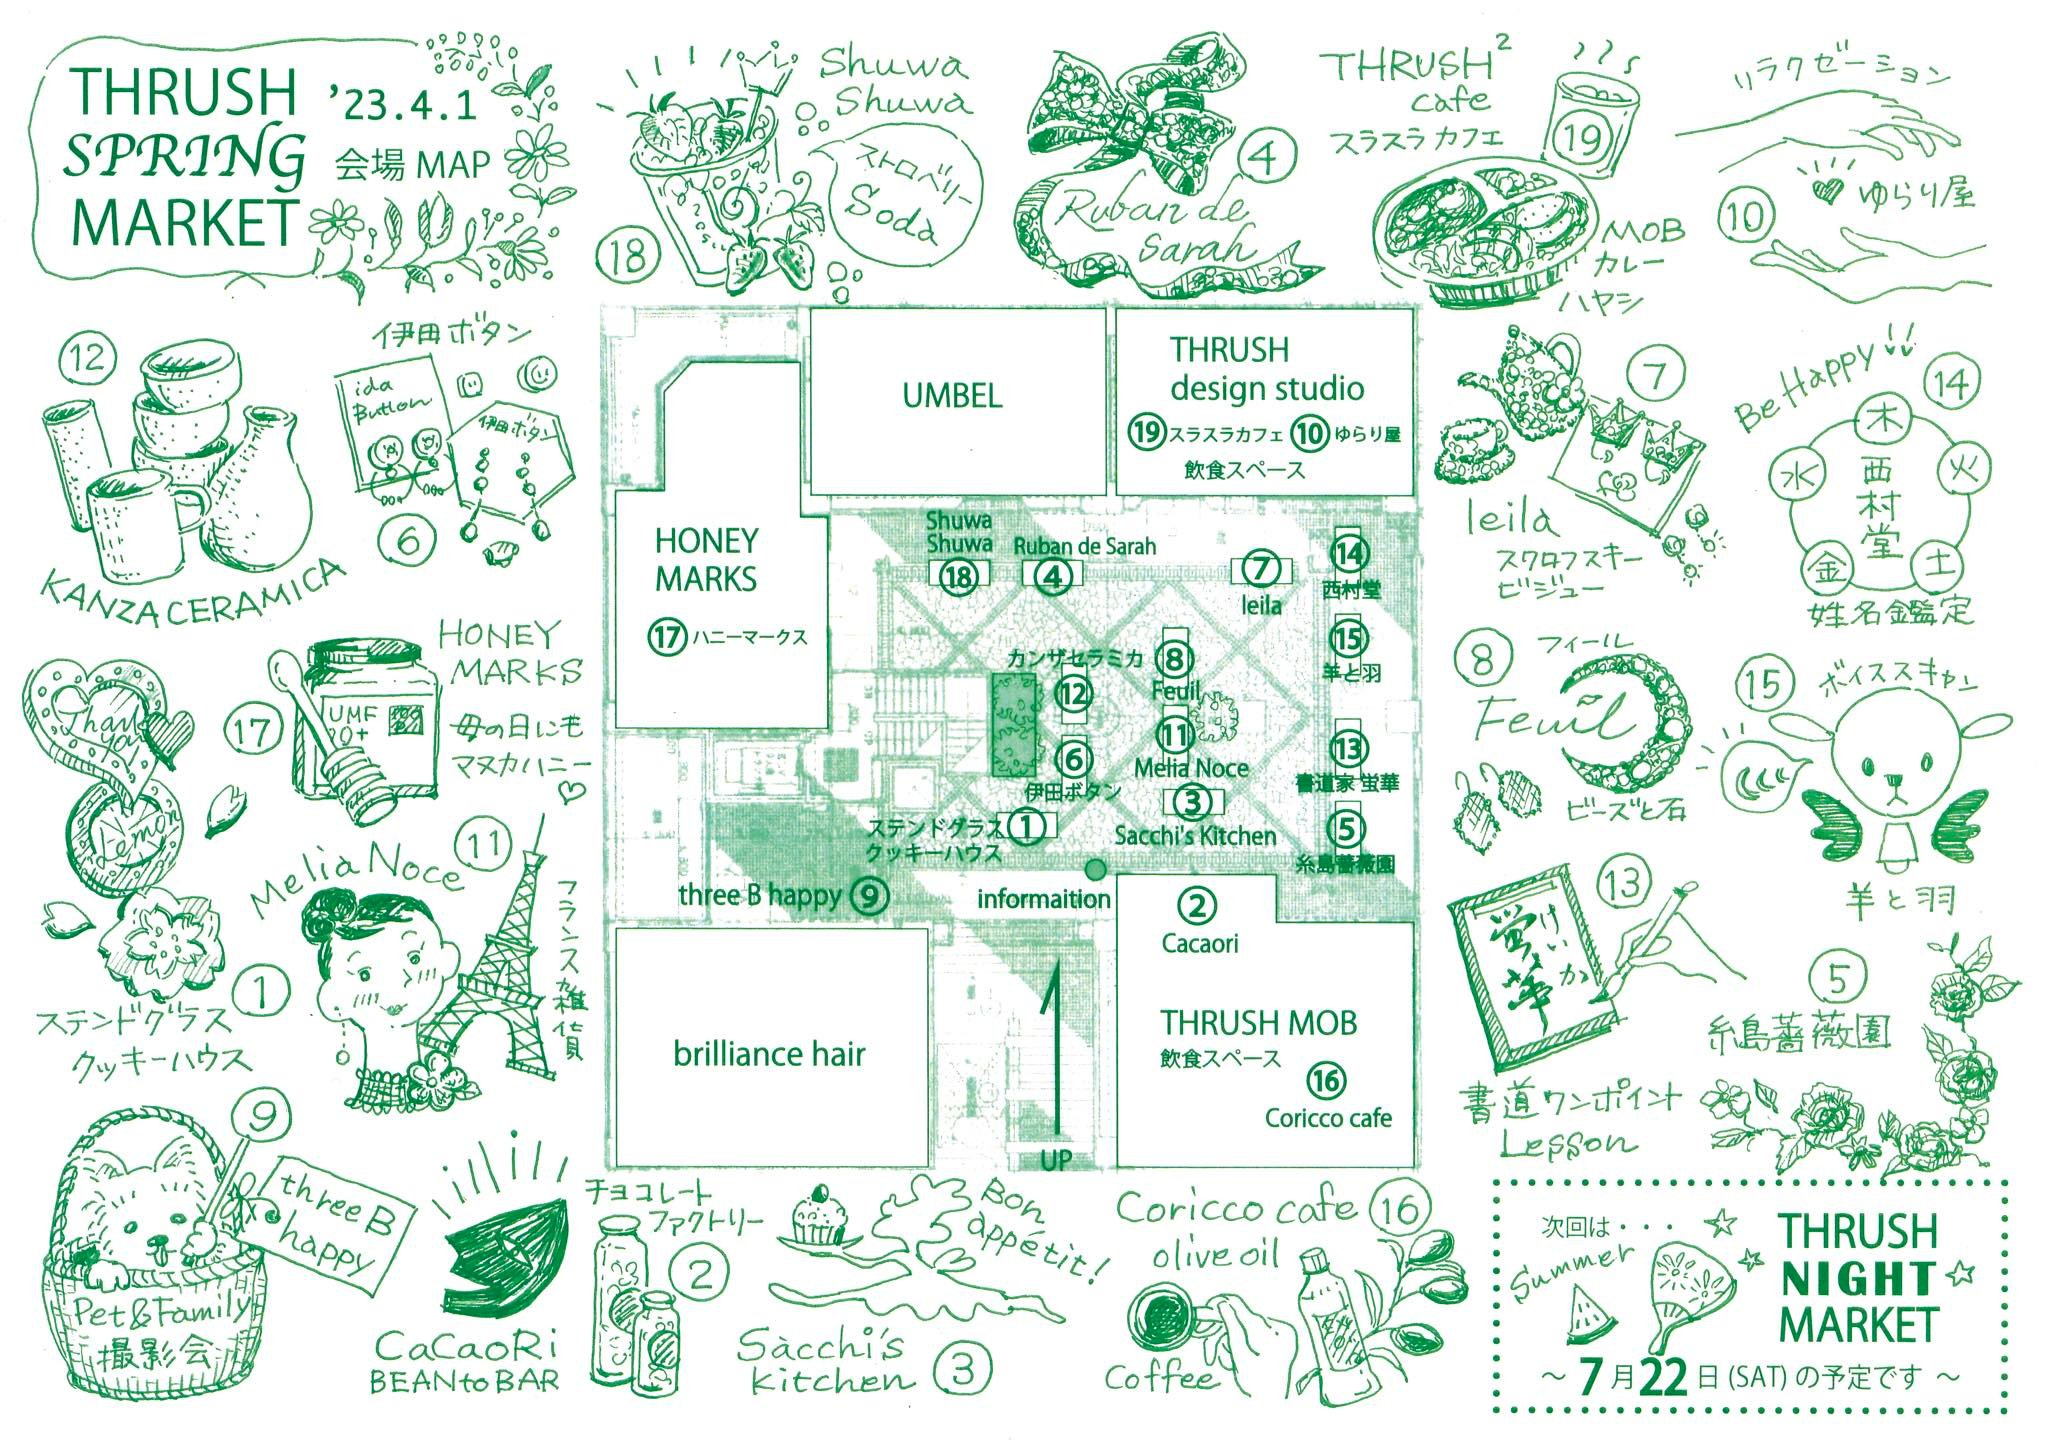 THRUSH
SPRING
MARKET
'23.4.1
会場 MAP
Shuwa
Shuwa
ストロベリー
Soda
18
Ruban de
Sarah
4
THRUSH²
cafe
スラスラカフェ
19
MOB
カレー
ハヤシ
リラクゼーション
ゆらり屋
10
12
KANZA CERAMICA
伊田ボタン
ida
Button
伊田ボタン
6
HONEY
MARKS
17
UMF
母の日にも
マヌカハニー
Thank
you
Lemon
1
ステンドグラス
クッキーハウス
Melia Noce
11
フランス雑貨
9
three B
happy
Pet&Family
撮影会
UMBEL
THRUSH
design studio
19 スラスラカフェ 10 ゆらり屋
飲食スペース
HONEY
MARKS
17 ハニーマークス
Shuwa
Shuwa
18
Ruban de Sarah
4
7
leila
14
西村堂
15
羊と羽
カンザセラミカ
12
8
Feuil
11
Melia Noce
6
伊田ボタン
13
書道家 蛍華
3
Sacchi's Kitchen
ステンドグラス
クッキーハウス
1
5
糸島薔薇園
three B happy 9
informaition
2
Cacaori
brilliance hair
THRUSH MOB
飲食スペース
16
Coricco cafe
UP
7
leila
スワロフスキー
ビジュー
Be Happy!!
14
木
火
土
金
水
西村堂
姓名鑑定
8
フィール
Feuil
ビーズと石
15
ボイススキャン
羊と羽
13
蛍華
けいか
書道ワンポイント
Lesson
5
糸島薔薇園
チョコレート
ファクトリー
2
CaCaoRi
BEAN to BAR
Bon
appétit!
Sacchi's
Kitchen
3
Coricco cafe 16
olive oil
Coffee
次回は・・・
Summer
THRUSH
NIGHT
MARKET
～ 7月22日 (SAT) の予定です ～